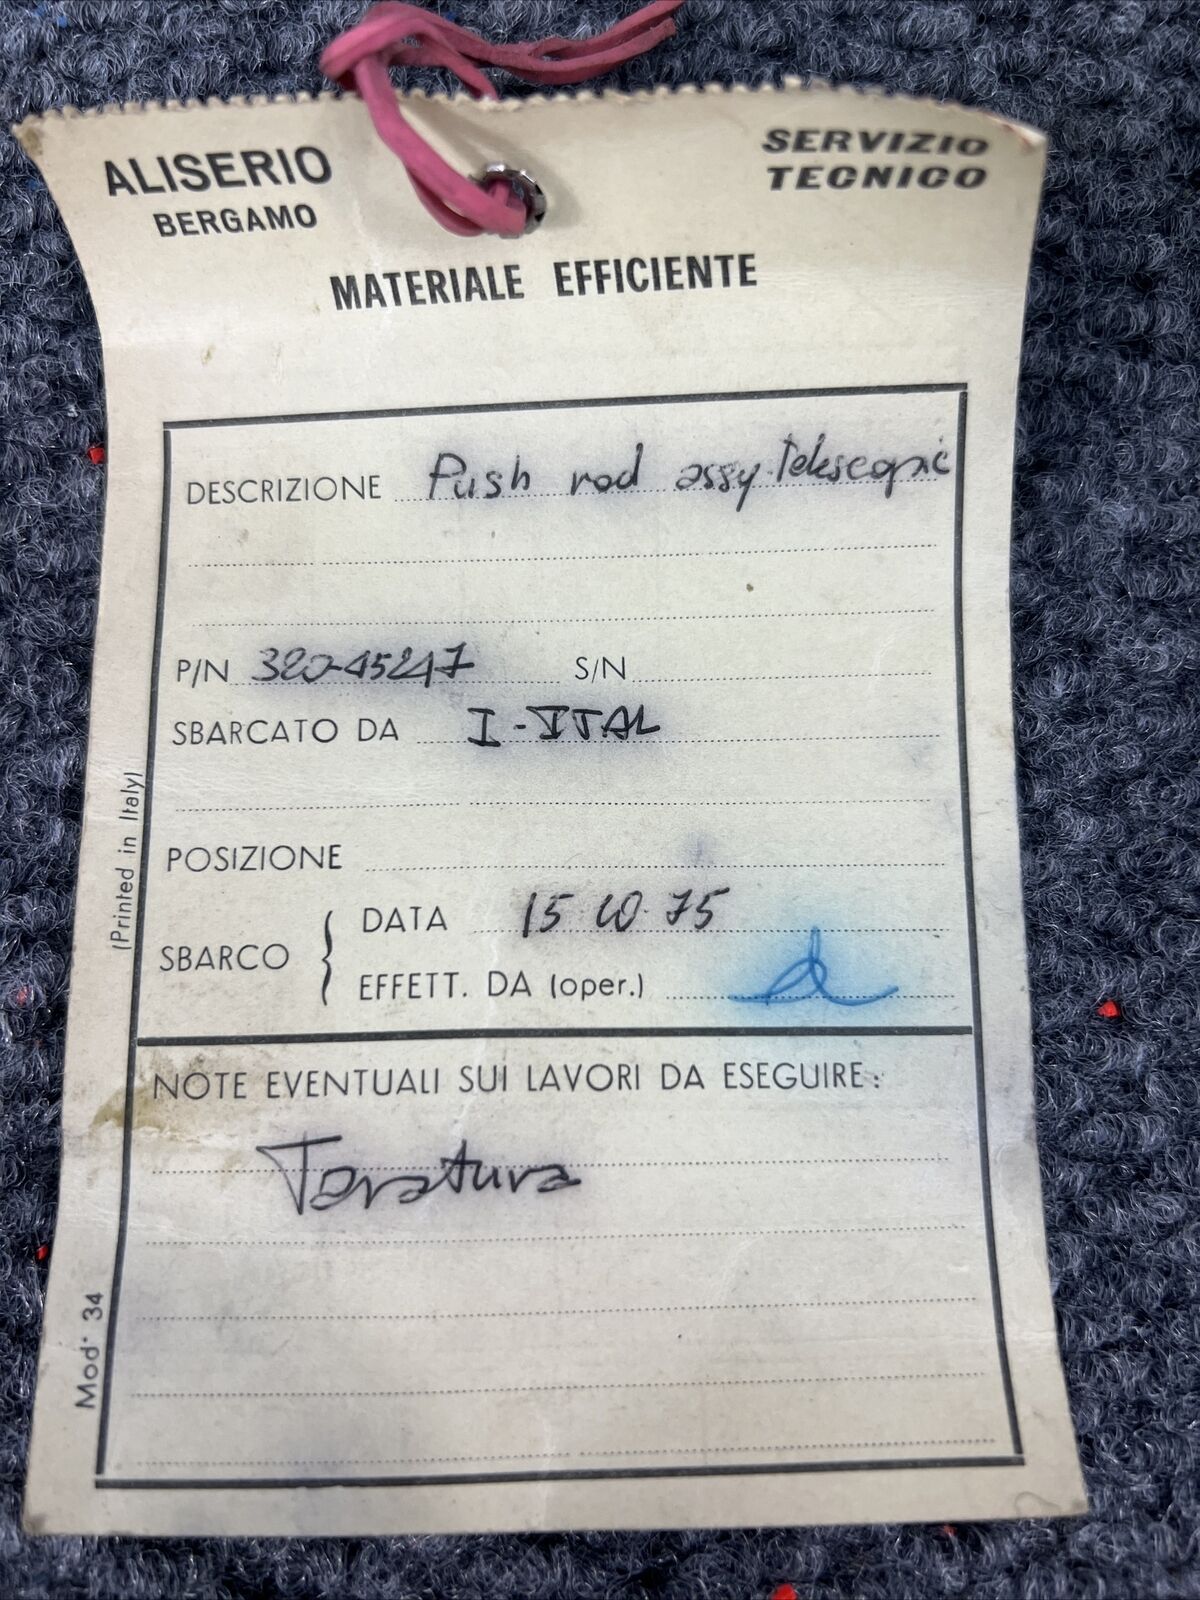 ALISERIO
BERGAMO
SERVIZIO
TECNICO
MATERIALE EFFICIENTE
DESCRIZIONE Push rod assy telescopic
P/N 320-45247 S/N
SBARCATO DA I-ITAL
POSIZIONE
SBARCO { DATA 15 10 75
EFFETT. DA (oper.)
NOTE EVENTUALI SUI LAVORI DA ESEGUIRE:
Taratura
(Printed in Italy)
Mod. 34